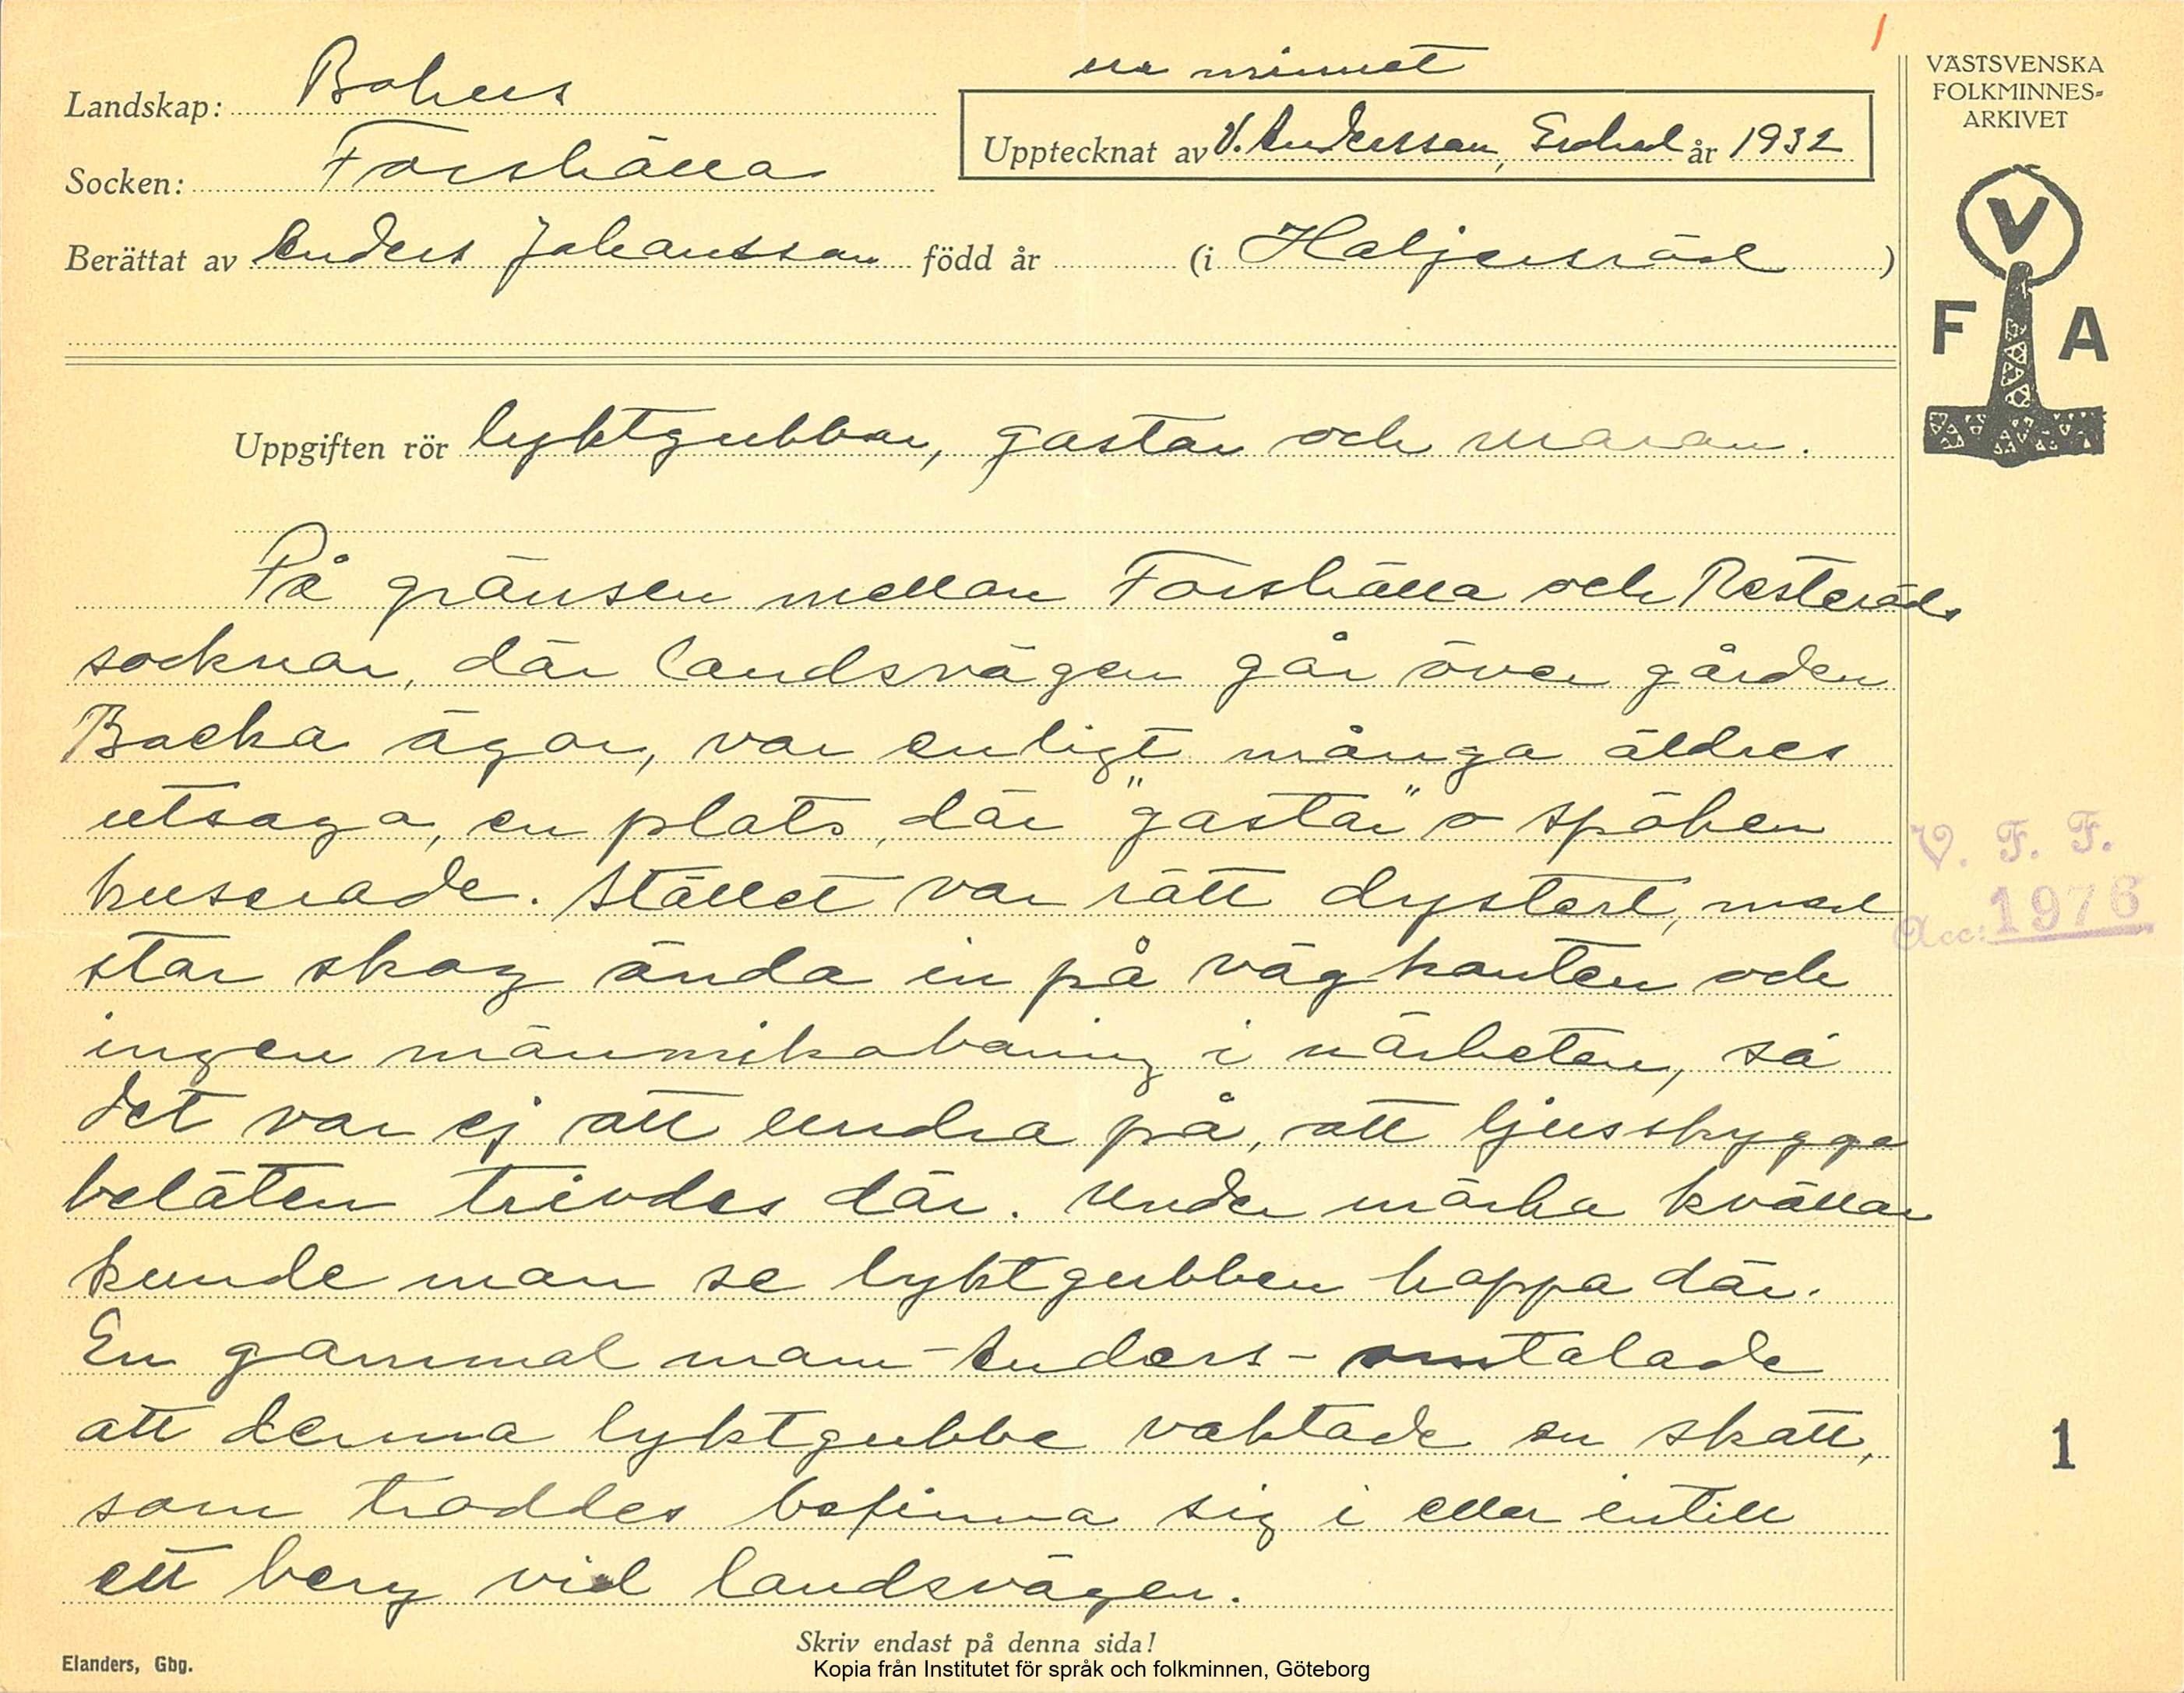 ur minnet
Landskap: Bohus
Socken: Forshälla
Upptecknat av V. Andersson, år 1932
Berättat av Anders Johansson född år (i Haljersröd)
VÄSTSVENSKA
FOLKMINNES-
ARKIVET
V
F A
Uppgiften rör lyktgubbar, gastar och maran.
På gränsen mellan Forshälla och Resteröds
socknar, där landsvägen går över gården
Backa ägor, var enligt många äldres
utsago, en plats, där "gastar" o spöken
husserade. Stället var rätt dystert, med
stor skog ända in på vägkanten och
ingen människoboning i närheten, så
det var ej att undra på, att ljusskygga
beläten trivdes där. Under mörka kvällar
kunde man se lyktgubben hoppa där.
En gammal man - Anders - omtalade
att denna lyktgubbe vaktade en skatt,
som troddes befinna sig i eller intill
ett berg vid landsvägen.
V. F. F.
Acc: 1976
1
Skriv endast på denna sida!
Elanders, Gbg.
Kopia från Institutet för språk och folkminnen, Göteborg